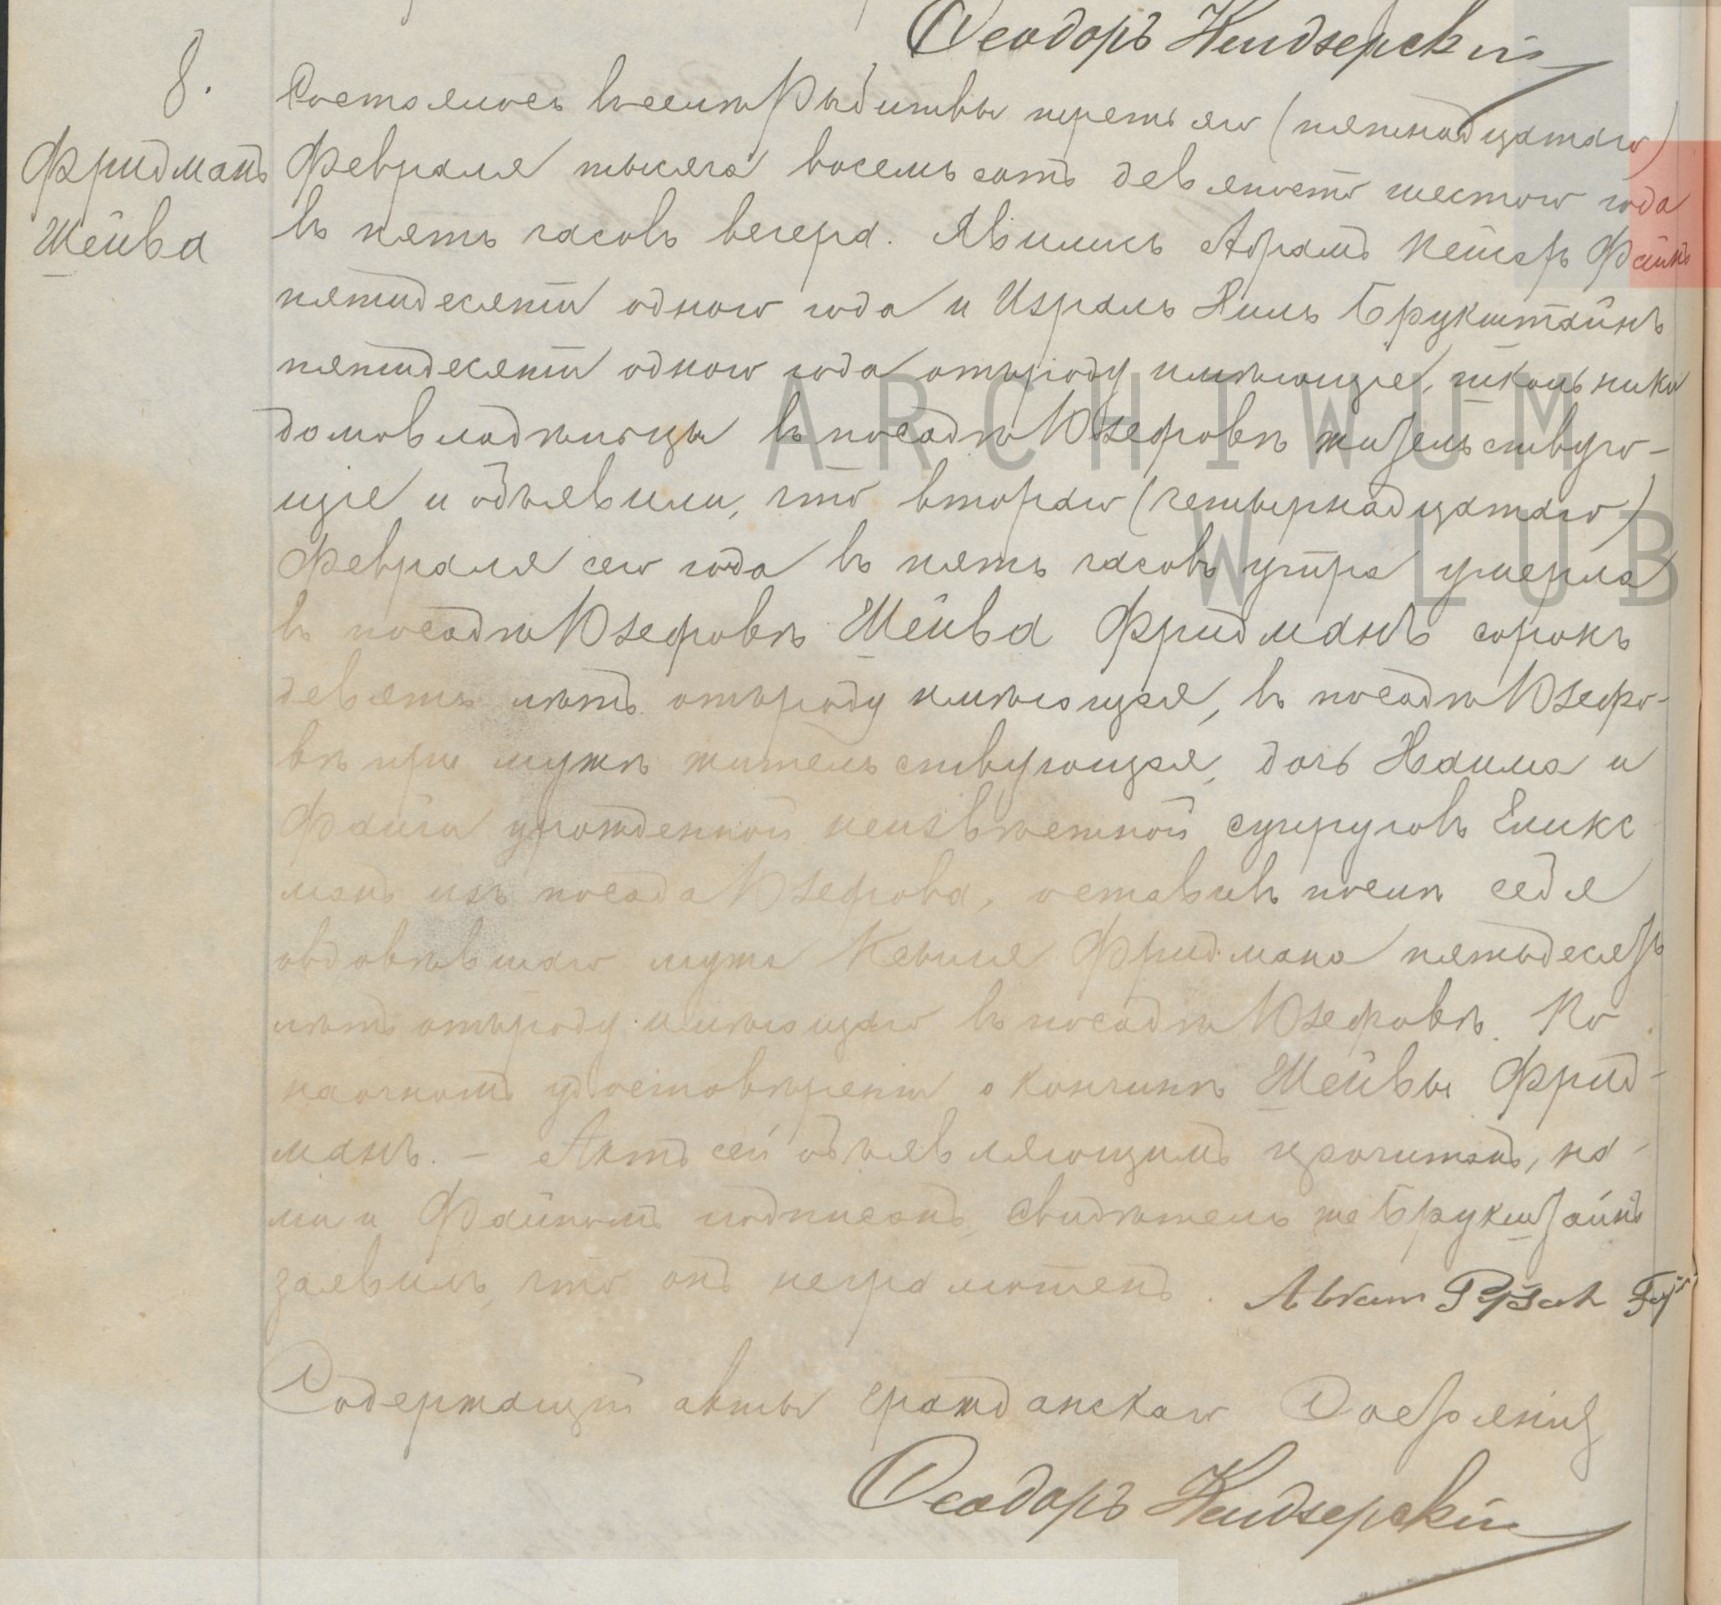 Ѳеодоръ Кендзерскій
8.
Состоялось въ селѣ Рыбитвы третьяго (пятнадцатаго)
Фридманъ
Февраля тысяча восемьсотъ девяносто шестого года
Шейва
въ пять часовъ вечера. Явились Абрамъ Пейсахъ Файнъ
пятидесяти одного года и Израиль Хиль Брукштайнъ
пятидесяти одного года отъ роду имѣющіе, школьники
домовладѣльцы въ посадѣ Юзефовѣ жительствую-
щіе и объявили, что второго (четырнадцатаго)
Февраля сего года въ пять часовъ утра умерла
въ посадѣ Юзефовѣ Шейва Фридманъ сорокъ
девять лѣтъ отъ роду имѣющая, въ посадѣ Юзефо-
вѣ при мужѣ жительствующая, дочь Хаима и
Файги урожденной неизвѣстной супруговъ
манъ изъ посада Юзефова, оставивъ послѣ себя
овдовѣвшаго мужа Фридмана пятьдесятъ
лѣтъ отъ роду имѣющаго въ посадѣ Юзефовѣ. По
наочномъ удостовѣреніи о кончинѣ Шейвы Фрид-
манъ. – Актъ сей объявляющимъ прочитанъ, на-
ми и Файномъ подписанъ, свидѣтель же Брукштайнъ
заявилъ, что онъ неграмотенъ. Abram
Содержащій акты гражданскаго Состоянія
Ѳеодоръ Кендзерскій
ARCHIWUM
W LUB